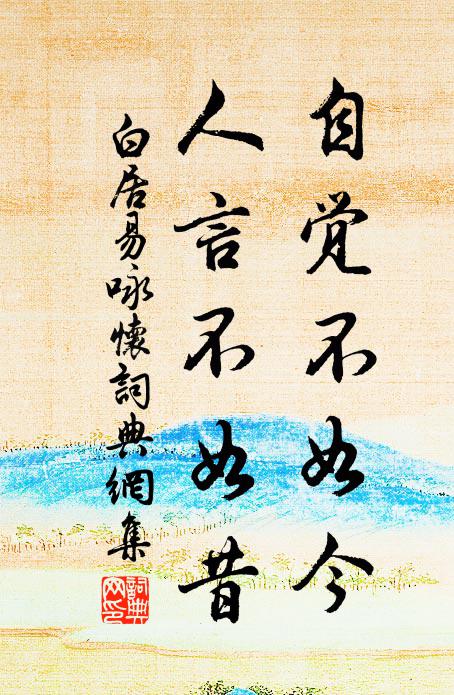 自觉不如今
人言不如昔
白居易咏懷詞典網集
詞典
网印